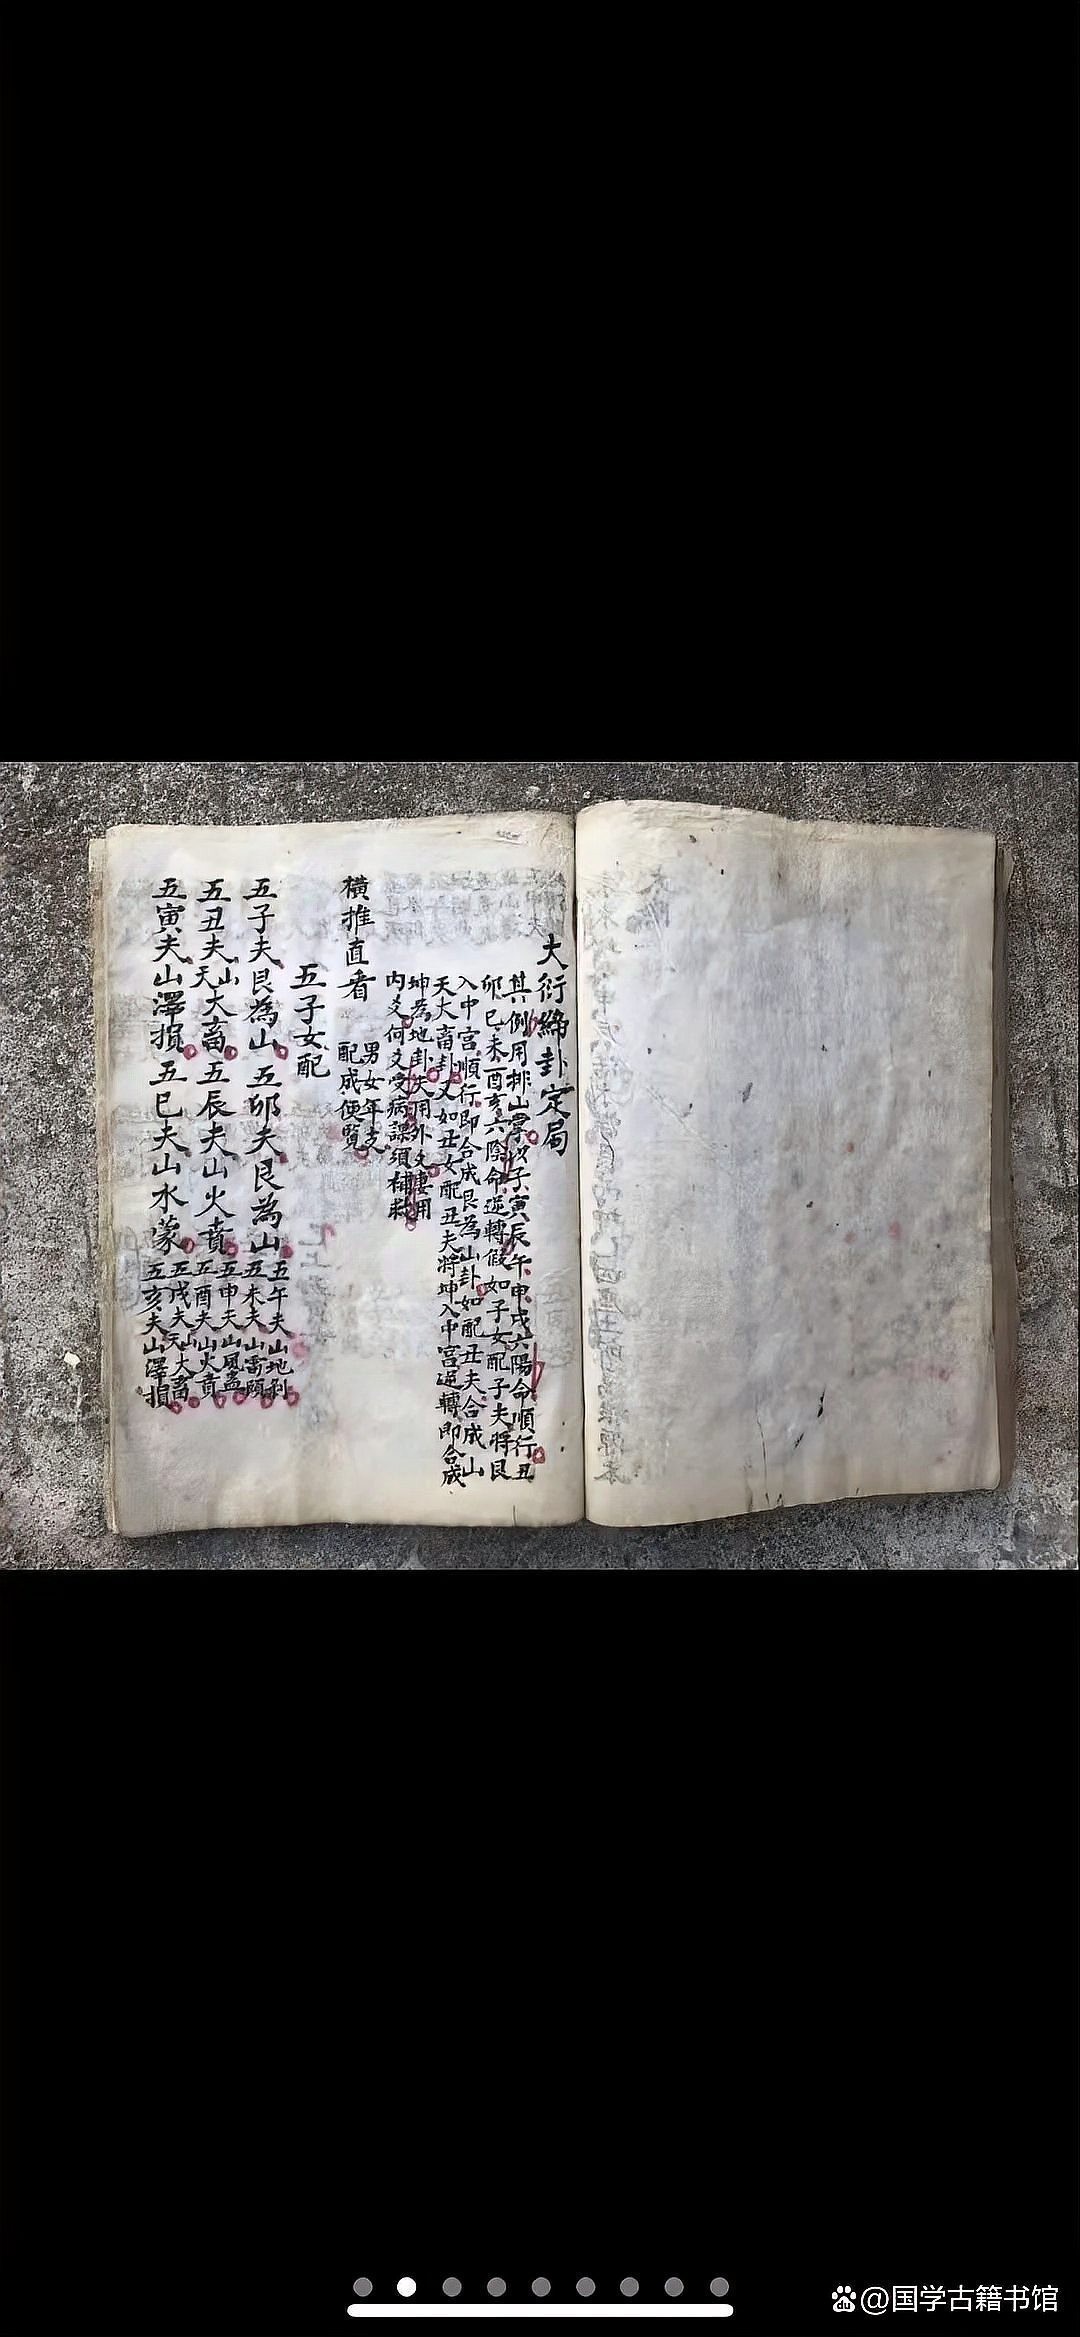 大衍締卦定局
其例用排山掌坎子寅辰午申戌六陽命順行丑
卯巳未酉亥六陰命逆轉假如子女配子夫將艮
入中宮順行即合成艮為山卦如配丑夫合成山
天大畜卦又如丑女配丑夫將坤入中宮逆轉即合成
坤為地卦夫用外爻妻用
內爻何爻受病課須補救
橫推直看
男女年支
配成便覽
五子女配
五子夫艮為山 五卯夫艮為山 五午夫山地剝
五未夫山雷頤
五丑夫山天大畜 五辰夫山火賁 五申夫山風蠱
五酉夫山火賁
五寅夫山澤損 五巳夫山水蒙 五戌夫山天大畜
五亥夫山澤損
@国学古籍书馆